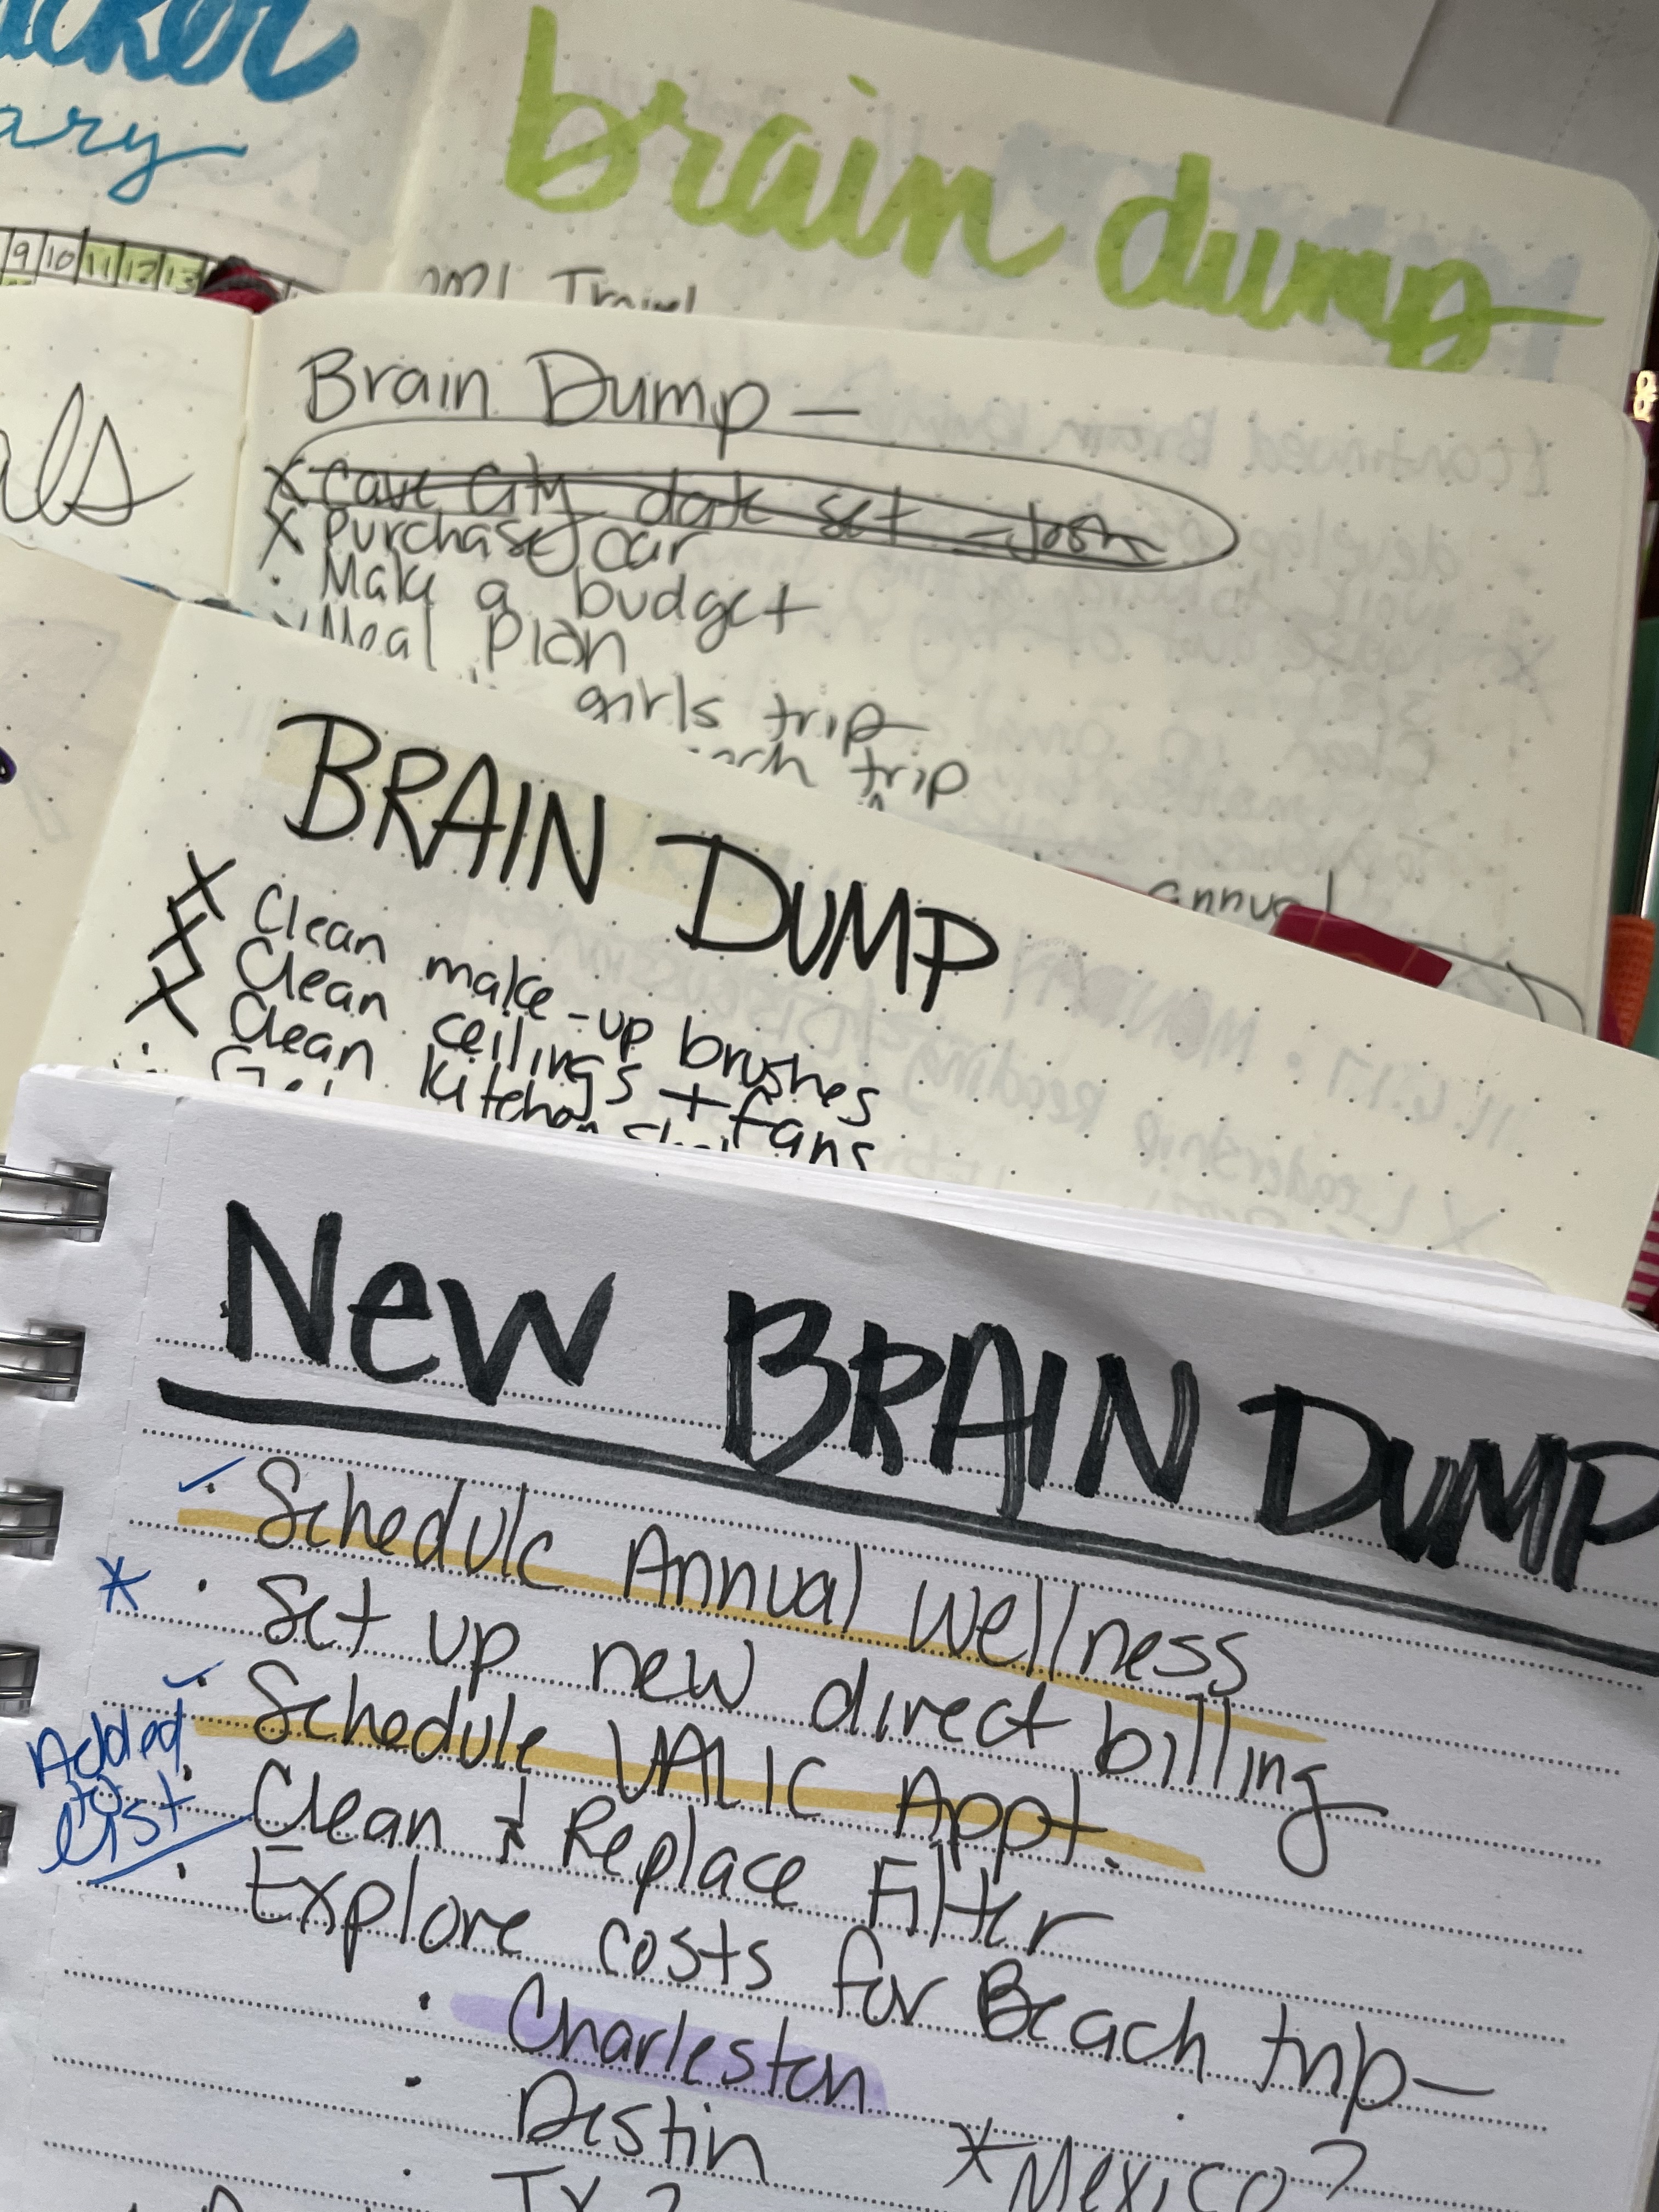 ary
9 10 11 12 13
brain dump
2021 Travel
Brain Dump —
X Cave City date set - Josh
X Purchase car
· Make a budget
Meal Plan
girls trip
trip
annual
BRAIN DUMP
X Clean make-up brushes
X Clean ceilings + fans
X Clean kitchen
New BRAIN DUMP
✓· Schedule Annual Wellness
* · Set up new direct billing
✓· Schedule VALIC Appt.
Added to list · Clean & Replace Filter
· Explore costs for Beach trip —
· Charleston
· Destin *Mexico?
· TX?